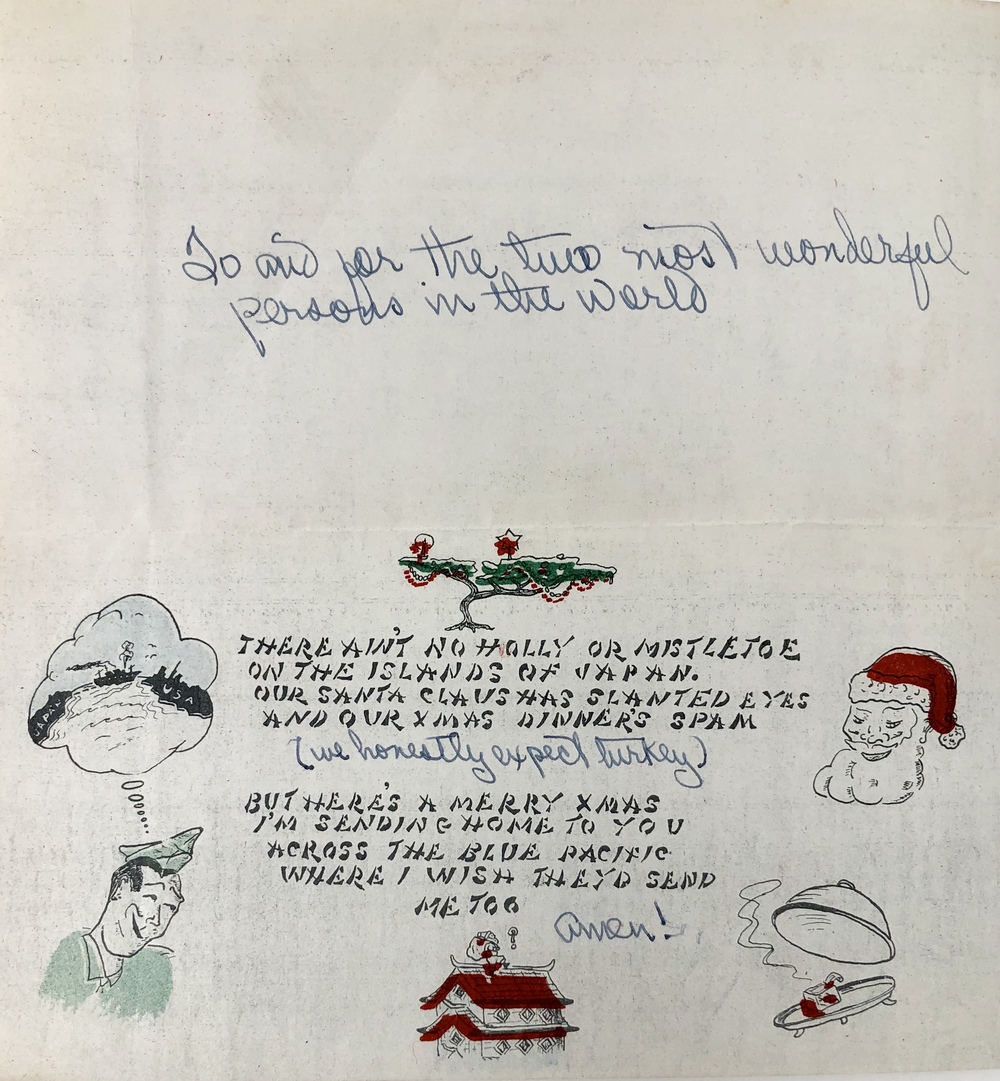 To and for the two most wonderful
persons in the world
THERE AIN'T NO HOLLY OR MISTLETOE
ON THE ISLANDS OF JAPAN.
OUR SANTA CLAUS HAS SLANTED EYES
AND OUR XMAS DINNER'S SPAM
(we honestly expect turkey)
JAPAN
USA
BUT HERE'S A MERRY XMAS
I'M SENDING HOME TO YOU
ACROSS THE BLUE PACIFIC
WHERE I WISH THEY'D SEND
ME TOO
Amen!
?